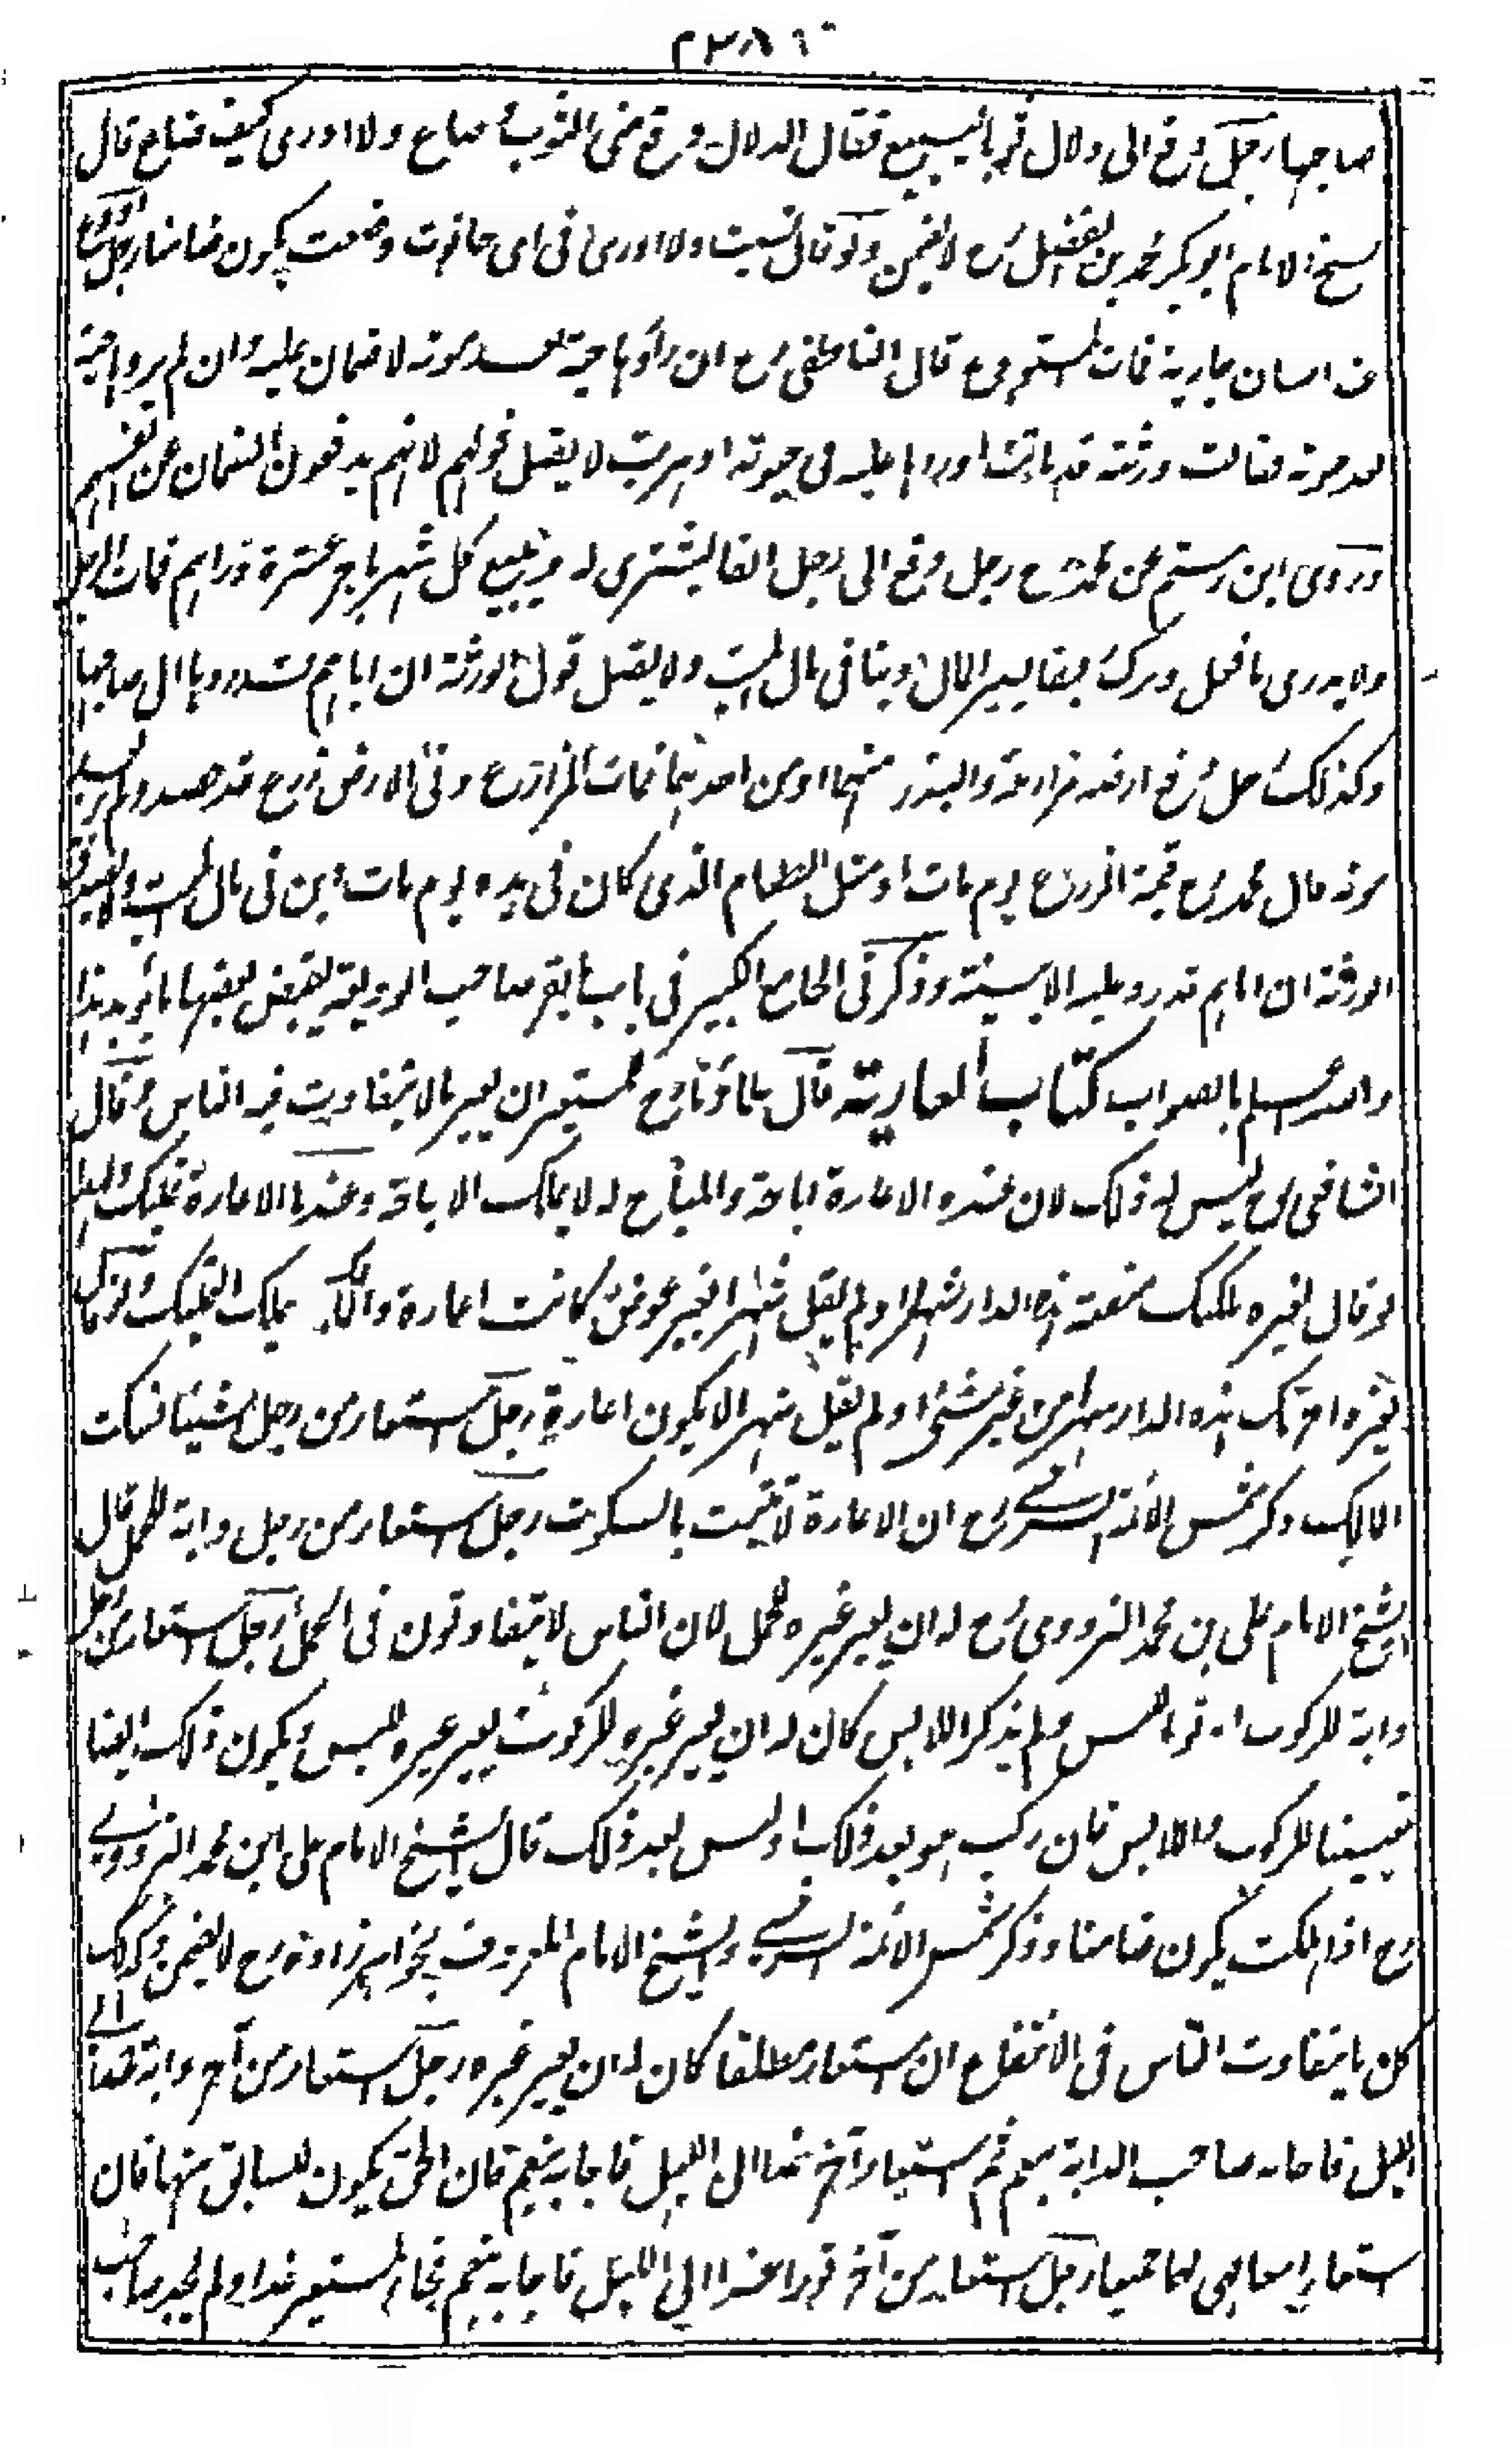 صاحبها رجل دفع الى دلال ثوبا ليبيع فقال الدلال وقع منى الثوب وضاع ولا ادرى كيف ضاع قال
شيخ الامام ابو بكر محمد بن الفضل رح لا يضمن ولو قال نسيت ولا ادرى فى اى حانوت وضعت يكون ضامنا رجل اودع
عند انسان جارية فمات المستودع قال الناطفى رح ان رأوها حية بعد موته لا ضمان عليه وان لم يروها حية
بعد موته فقالت ورثته قد ماتت او ردها عليه فى حيوته او هربت لا يقبل قولهم لانهم يدفعون الضمان عن انفسهم
وروى ابن رستم عن محمد رح رجل دفع الى رجل الفا ليشترى له ويبيع كل شهر باجر عشرة دراهم فمات الرجل
ولا يدرى ما فعل ذلك فقال يصير المال دينا فى مال الميت ولا يقبل قول الورثة ان اباهم قد ردها الى صاحبها
وكذلك رجل دفع ارضه مزارعة والبذر منهما او من احدهما فمات المزارع وفى الارض زرع قد حصد ولم
موته قال محمد رح قيمة الزرع يوم مات او مثل الطعام الذى كان فى يده يوم مات دين فى مال الميت ولا يصدق
الورثة ان اباهم قد رد عليه الا ببينة وذكر فى الجامع الكبير فى باب ما يقر صاحب الوديعة بقبض بعضها ما يؤيد هذا
والله اعلم بالصواب كتاب العارية قال علماؤنا رح للمستعير ان يعير ما لا يتفاوت فيه الناس وقال
الشافعى رح ليس له ذلك لان عنده الاعارة اباحة والمباح له لا يملك الاباحة وعندنا الاعارة تمليك
لو قال لغيره ملكتك منفعة هذه الدار شهرا او لم يقل شهرا بغير عوض كانت اعارة والمالك يملك التمليك ولو قال
لغيره اجرتك هذه الدار شهرا من غير شئ او لم يقل شهرا لا يكون اعارة رجل استعار من رجل شيئا فسكت
المالك ذكر شمس الائمة السرخسى رح ان الاعارة لا تثبت بالسكوت رجل استعار من رجل دابة للحمل قال
الشيخ الامام على بن محمد البزدوى رح له ان يعير غيره للحمل لان الناس لا يتفاوتون فى الحمل رجل استعار من رجل
دابة للركوب او ثوبا للبس ولم يذكر اللابس كان له ان يعير غيره للركوب ويعير غيره للبس ويكون ذلك ايضا
تعيينا للركوب واللابس فان ركب هو بعد ذلك او لبس بعد ذلك قال الشيخ الامام على ابن محمد البزدوى
رح اذا هلكت يكون ضامنا وذكر شمس الائمة السرخسى والشيخ الامام المعروف بخواهر زاده رح لا يضمن وكذلك
كل ما يتفاوت الناس فى الانتفاع ان استعار مطلقا كان له ان يعير غيره رجل استعار من آخر دابة غدا الى
الليل فاجابه صاحب الدابة بنعم ثم استعار آخر غدا الى الليل فاجابه بنعم فان الحق يكون للسابق منهما فان
استعارا معا فهى لهما جميعا رجل استعار من آخر ثورا غدا الى الليل فاجابه بنعم فجاء المستعير غدا ولم يجد صاحب